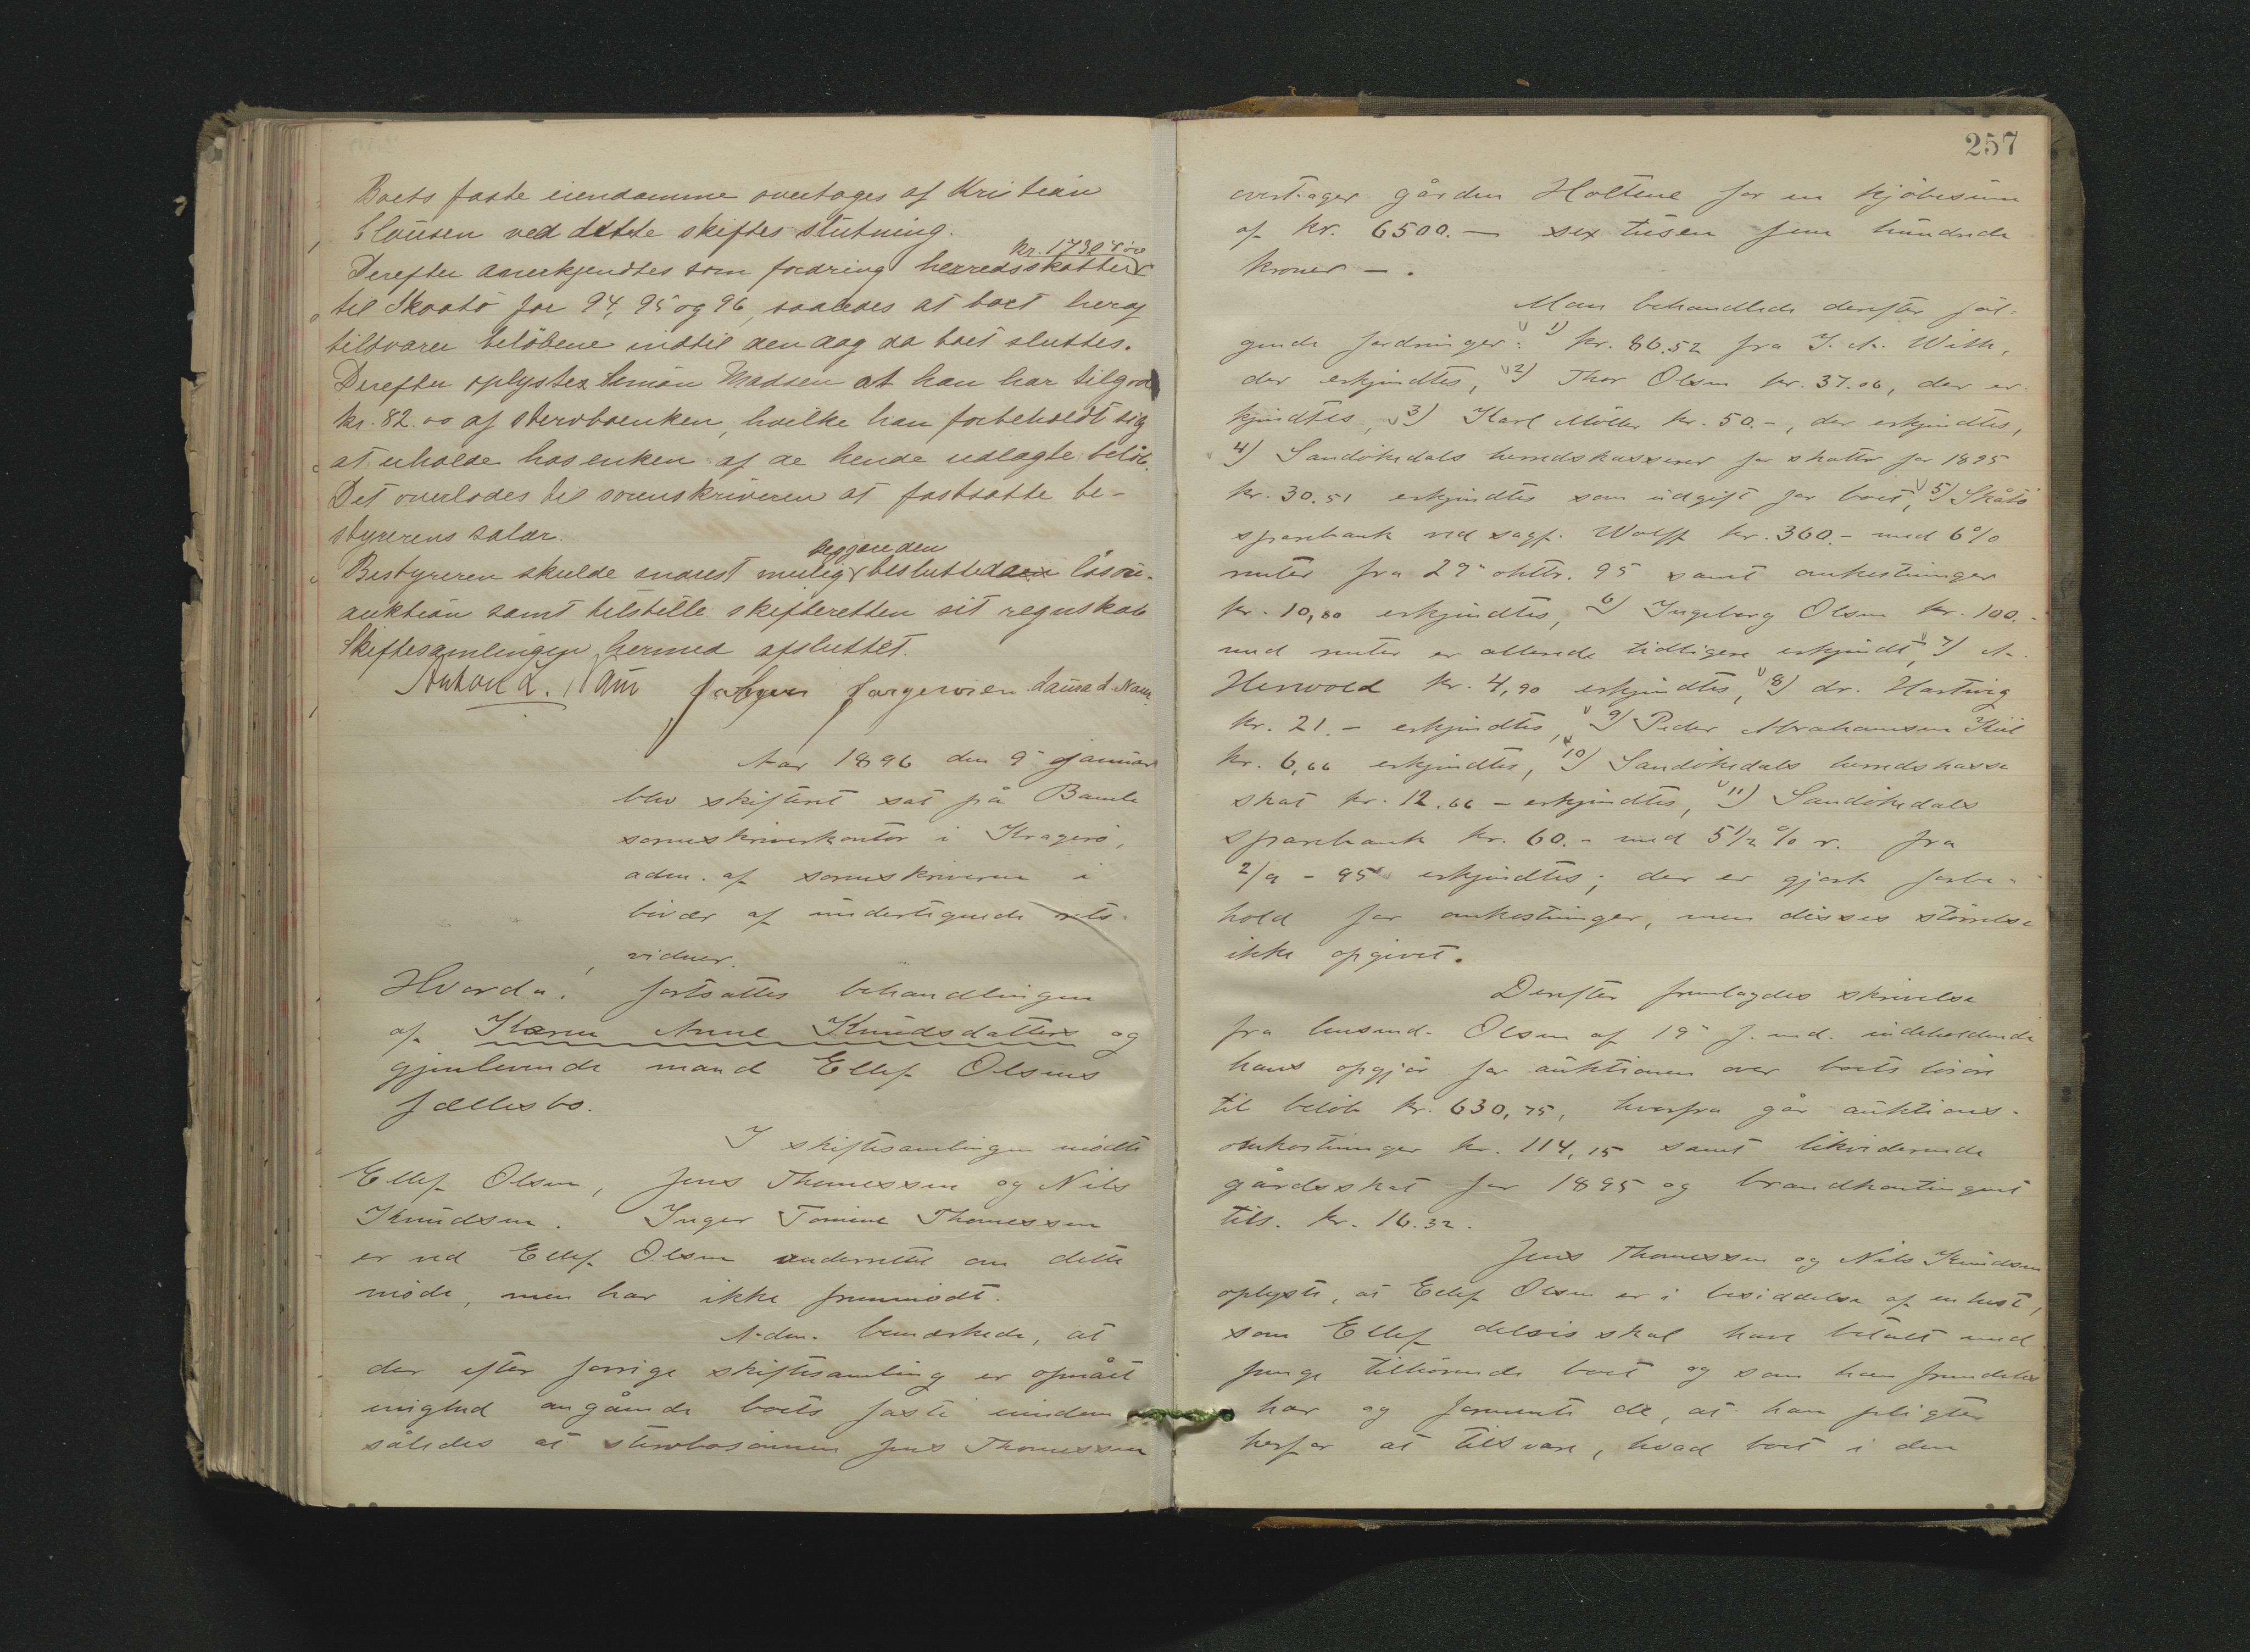 Boets faste eiendomme overtages af Kristian
Clausen ved dette skiftes slutning.
kr. 173
Derefter anerkjendtes som fordring herredsskatter
til Skaatö for 94, 95 og 96, saaledes at boet heraf
tilsvarer belöbene indtil den dag da boet sluttes.
Derefter oplystes Simon Madsen at han har tilgode
kr. 82.00 af stervboenken, hvilke han forbeholdt sig
at erholde hos enken af de hende udlagte belöb.
Det overlodes til sorenskriveren at fastsatte be-
styrerens salær.
begjære den
Bestyreren skulde snarest mulig besluttede lösöre-
auktion samt tilstille skifteretten sit regnskab
Skiftesamlingen hermed afsluttet.
Anton L. Næss Jörgensen Laura L. Næss
Aar 1896 den 9de januar
blev skifteret sat på Bamle
sorenskriverkontor i Kragerö,
adm. af sorenskriveren i
bivær af undertegnede rets-
vidner.
Hvorda: fortsattes behandlingen
af Karen Anne Knudsdatters og
gjenlevende mand Ellef Olsens
fællesbo.
I skiftesamlingen mödte
Ellef Olsen, Jens Thomessen og Nils
Knudsen. Inger Tomine Thomessen
er ved Ellef Olsen underrettet om dette
möde, men har ikke fremmödt.
Adm. bemærkede, at
der efter forrige skiftesamling er opnået
enighed angående boets faste eiendom
således at stervbosönnen Jens Thomessen
257
overtager gården Holtene for en kjöbesum
af kr. 6500.— sex tusen fem hundrede
kroner —.
Man behandlede derefter föl-
gende fordringer: 1) kr. 86.52 fra J. A. With,
der erkjendtes, 2) Thor Olsen kr. 37.06, der er-
kjendtes, 3) Karl Möller kr. 50.-, der erkjendtes,
4) Sandökedals herredskasserer for skatter for 1895
kr. 30.51 erkjendtes som udgift for boet, 5) Skåtö
sparebank ved sagf. Wolff kr. 360.- med 6%
renter fra 29de oktbr. 95 samt omkostninger
kr. 10,80 erkjendtes, 6) Ingeborg Olsen kr. 100.-
med renter er allerede tidligere erkjendt, 7) A.
Herwold kr. 4,90 erkjendtes, 8) dr. Hartvig
kr. 21.- erkjendtes, 9) Peder Abrahamsen Kiil
kr. 6,66 erkjendtes, 10) Sandökedals herredskasse
skat kr. 12.66 - erkjendtes, 11) Sandökedals
sparebank kr. 60.- med 5 1/2 % r. fra
2/9 - 95 erkjendtes; der er gjort forbe-
hold for omkostninger, men disses störrelse
ikke opgivet.
Derefter fremlagdes skrivelse
fra lensmd. Olsen af 19de f. md. indeholdende
hans opgjör for auktionen over boets lösöre
til belöb kr. 630,75, hvorfra går auktions-
omkostninger kr. 114,15 samt likviderende
gårdsskat for 1895 og brandkontingent
tils. kr. 16.32.
Jens Thomessen og Nils Knudsen
oplyste, at Ellef Olsen er i besiddelse af en hest,
som Ellef delvis skal have betalt med
penge tilhörende boet og som han fremdeles
har og formente de, at han pligter
herfor at tilsvare, hvad boet i den